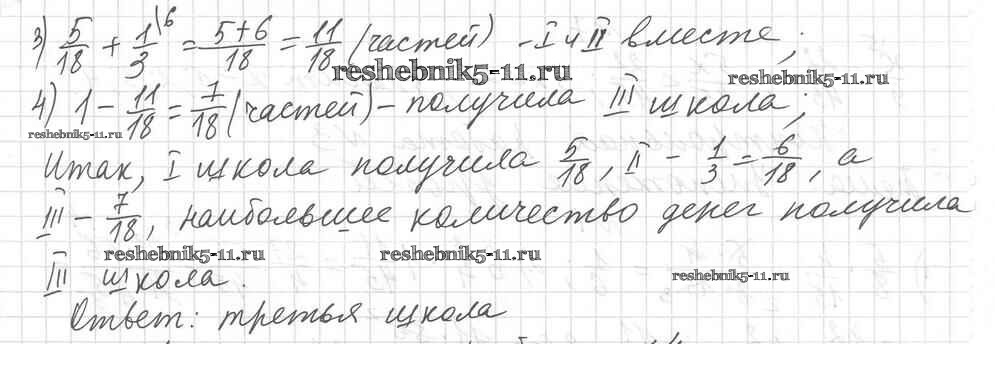 3) 5/18 + 1/3 \6 = 5+6/18 = 11/18 (частей) - I и II вместе;
reshebnik5-11.ru
reshebnik5-11.ru
4) 1 - 11/18 = 7/18 (частей) - получила III школа;
reshebnik5-11.ru
Итак, I школа получила 5/18, II - 1/3 = 6/18, а
III - 7/18, наибольшее количество денег получила
reshebnik5-11.ru
reshebnik5-11.ru
III школа.
reshebnik5-11.ru
Ответ: третья школа